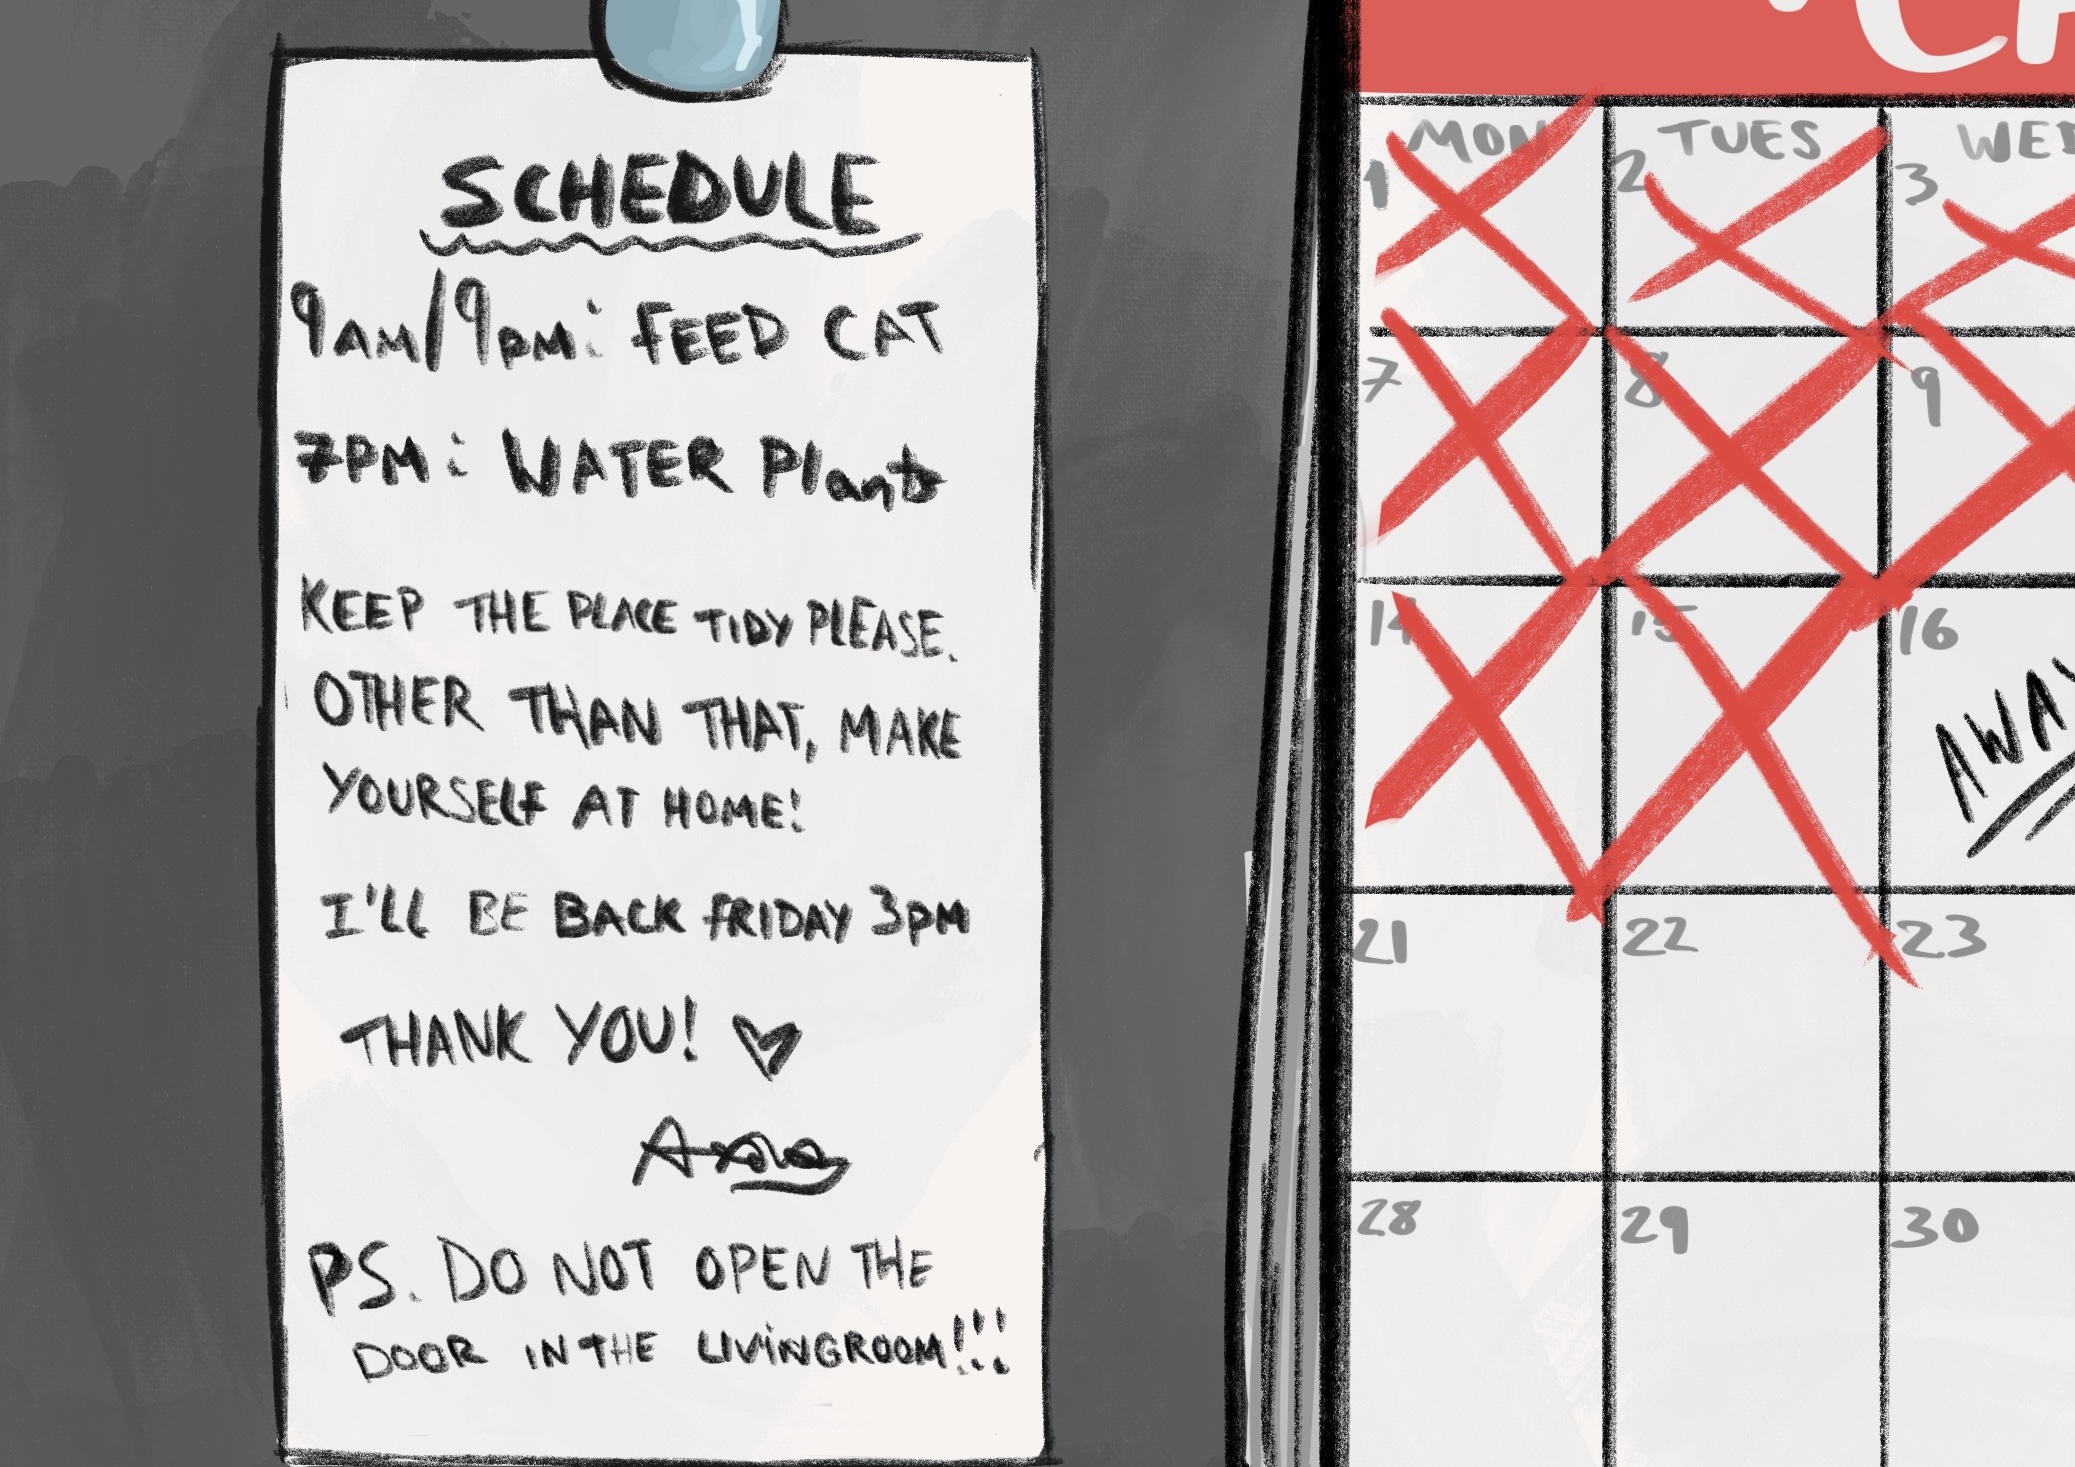 SCHEDULE
9AM/9PM: FEED CAT
7PM: WATER Plants
KEEP THE PLACE TIDY PLEASE.
OTHER THAN THAT, MAKE
YOURSELF AT HOME!
I'LL BE BACK FRIDAY 3PM
THANK YOU!
PS. DO NOT OPEN THE
DOOR IN THE LIVINGROOM!!!
MON TUES WED
1 2 3
7 8 9
14 15 16
AWAY
21 22 23
28 29 30